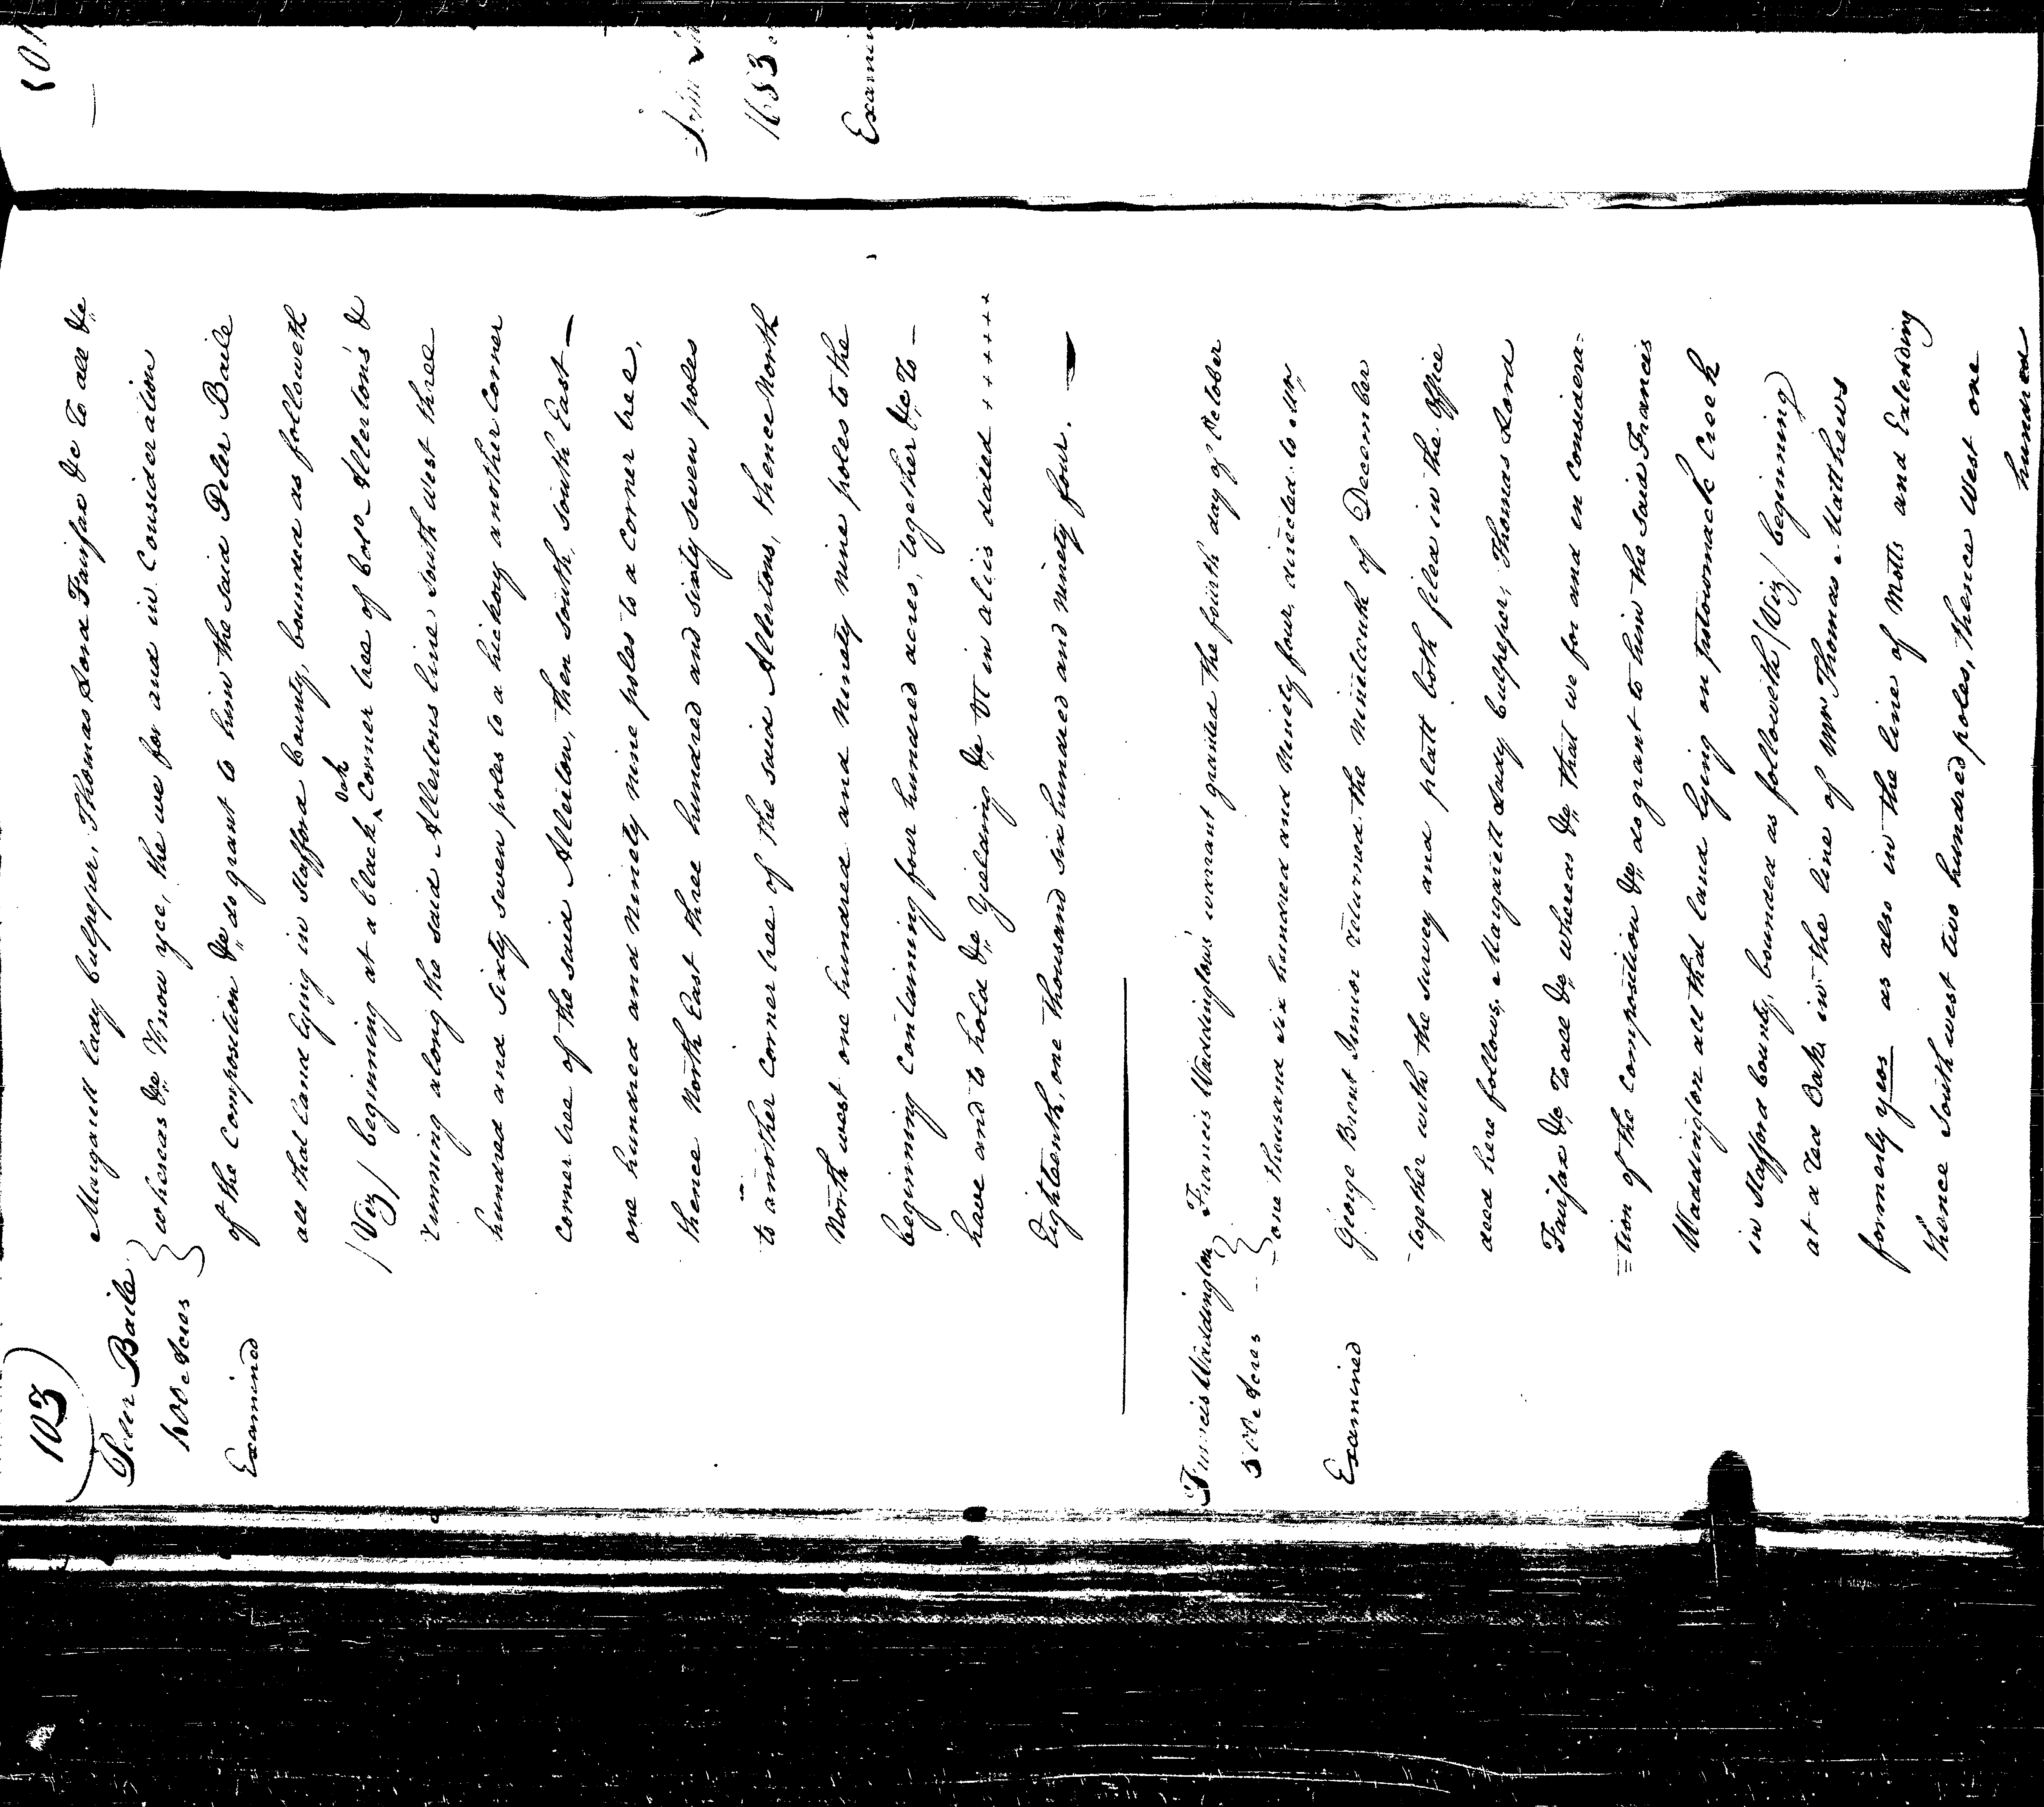 103
Peter Baile
400 Acres
Examined
Margarett lady Culpeper, Thomas Lord Fairfax &c To all &c
whereas &c Know yee, the we for and in Consideration
of the Composition &c do grant to him the said Peter Baile
all that land lying in Stafford County, bounded as followeth
/Viz/ beginning at a black oak Corner tree of Colo Allerton's &
running along the said Allertons line South west three
hundred and sixty seven poles to a hickory another Corner
Corner tree of the said Allerton, then south, South East—
one hundred and Ninety nine poles to a Corner tree,
thence North East three hundred and sixty seven poles
to another Corner tree of the said Allertons, thence North
North west one hundred and ninety nine poles to the
beginning Containing four hundred acres, together &c To—
have and to hold &c Yielding &c Ut in aliis dated + + + + +
Eighteenth, one thousand six hundred and ninety four. —
Francis Waddington
Acres
Examined
Francis Waddington's warrant granted the fourth day of October
one thousand six hundred and Ninety four, directed to Mr
George Brent Junior returned the Nineteenth of December
together with the survey and platt both filed in the Office
deed here follows, Margarett Lady Culpeper, Thomas Lord
Fairfax &c To all &c whereas &c that we for and in Considera=
=tion of the Composition &c do grant to him the said Francis
Waddington all that land lying on Potowmack Creek
in Stafford County, bounded as followeth /Viz/ beginning
at a red Oak in the line of Mr Thomas Matthews
formerly yeos as also in the line of Motts and Extending
thence South west two hundred poles, thence West one
hundred
1683